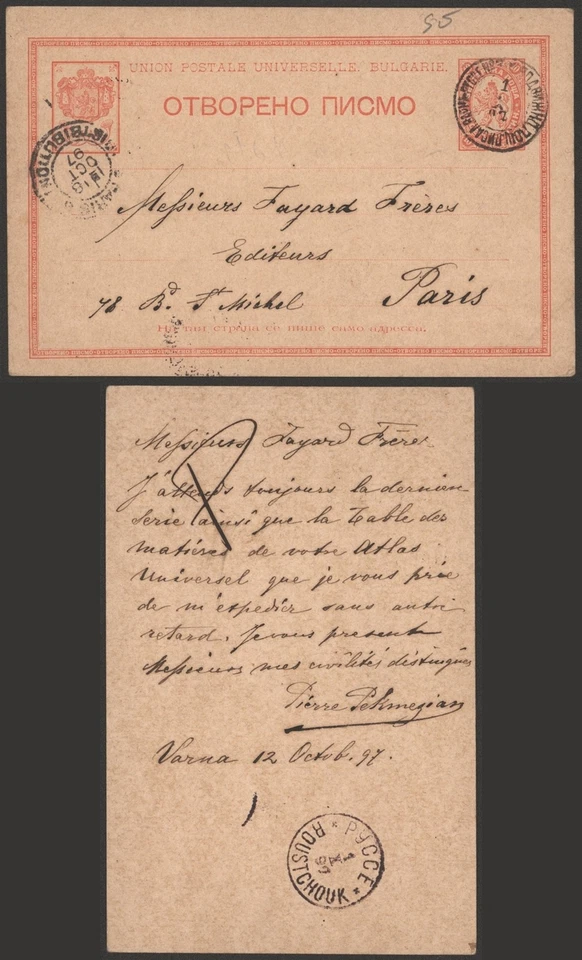 95
UNION POSTALE UNIVERSELLE. BULGARIE.
ОТВОРЕНО ПИСМО
PARIS DISTRIBUTION
16
OCT
97
Messieurs Fayard Frères
Editeurs
78 Bd. St Michel Paris
На тая страна се пише само адресса.
Messieurs Fayard Frères
J'attends toujours la dernière
serie (ainsi que la Table des
matières de votre Atlas
Universel que je vous prie
de m'expedier sans autre
retard. Je vous presente
Messieurs mes civilités distinguées
Pierre Pekmezian
Varna 12 Octob. 97.
РУССЕ
ROUSTCHOUK
1
X